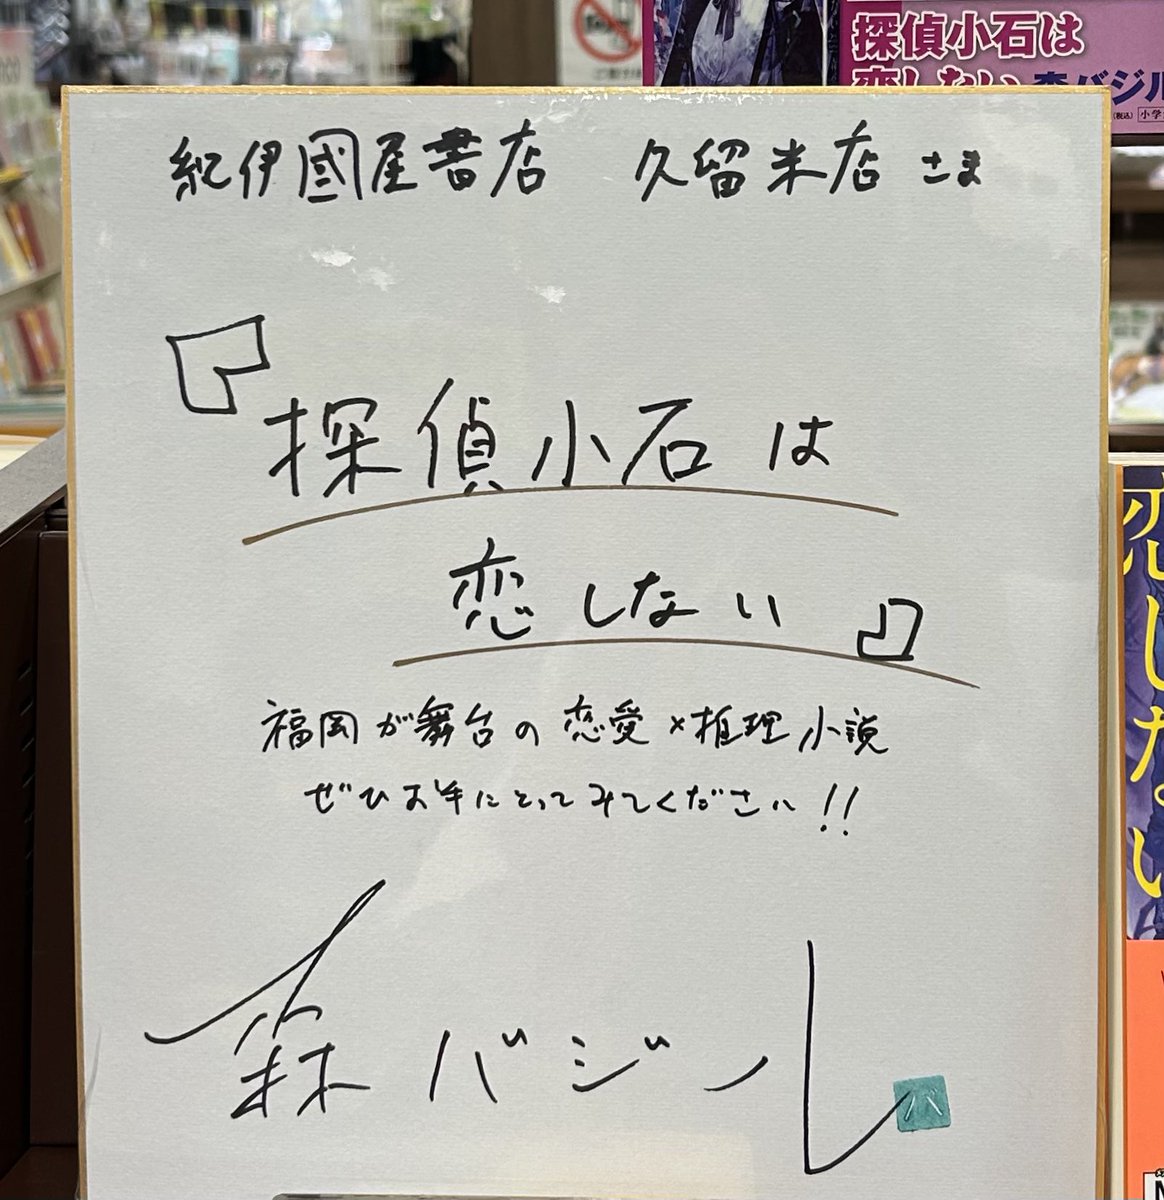 探偵小石は
恋しない 森バジル
(税込)
小学
紀伊國屋書店 久留米店 さま
『探偵小石は
恋しない』
福岡が舞台の恋愛×推理小説
ぜひお手にとってみてください!!
森バジル
バ
恋しない